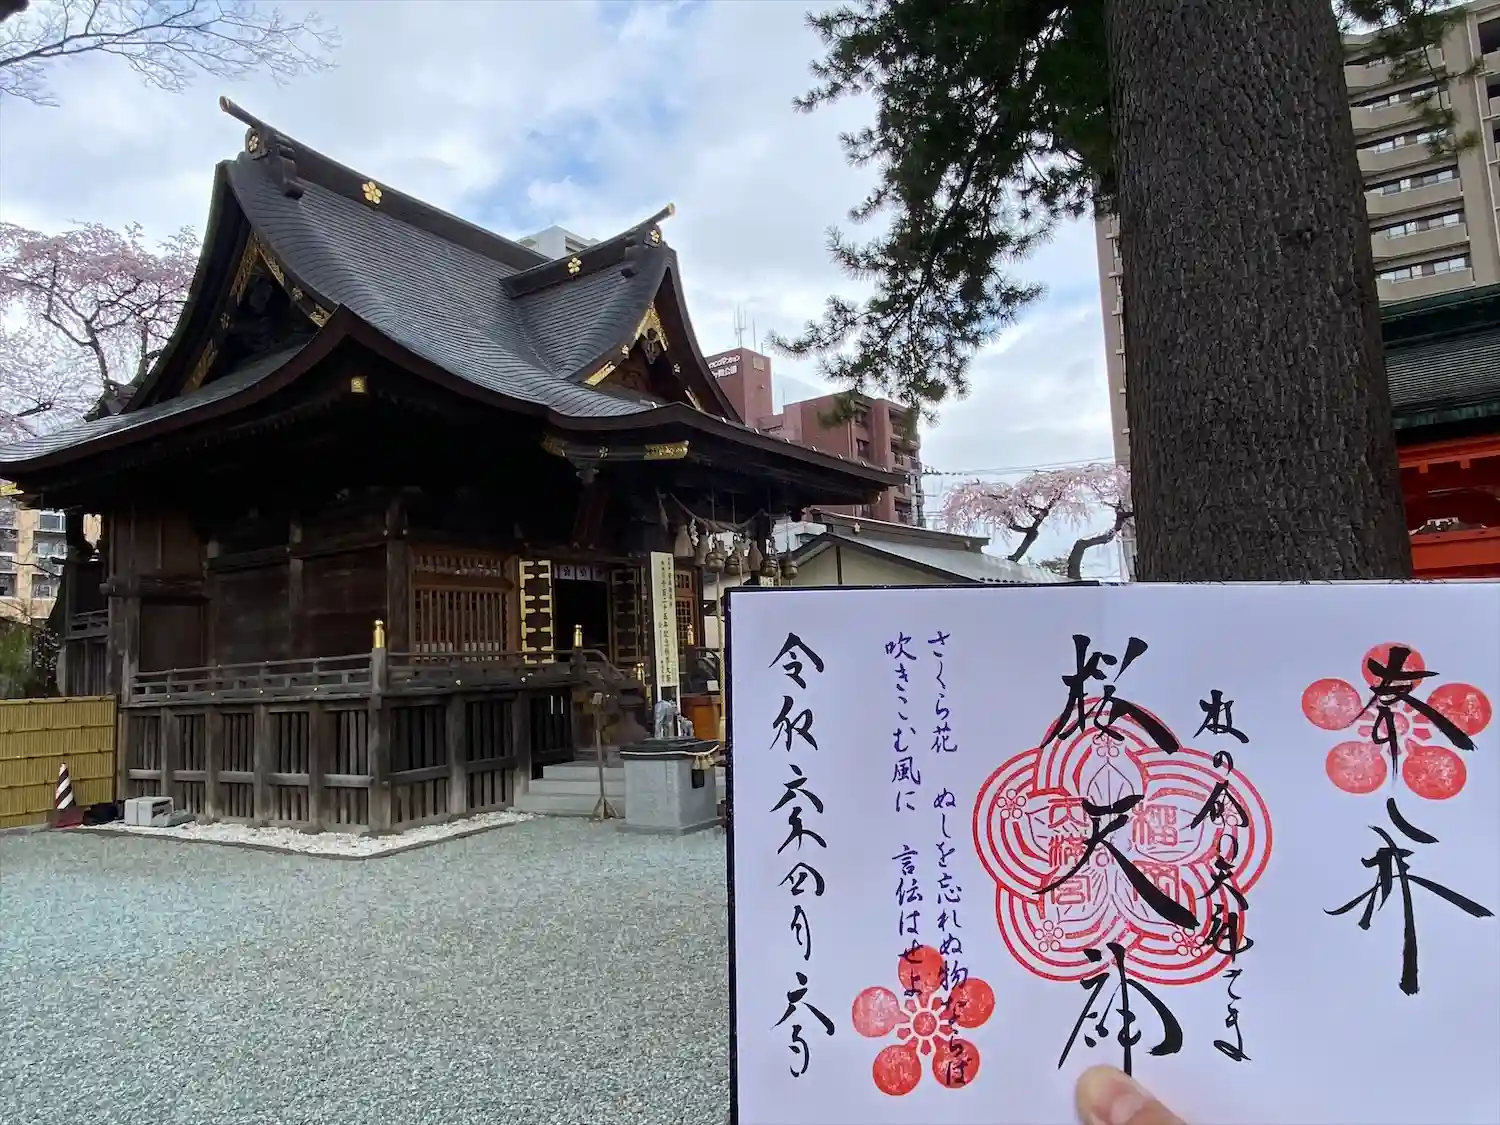 奉拝
杜の令和天神さま
桜天神
榴岡
天満宮
さくら花 ぬしを忘れぬ物ならば
吹きこむ風に 言伝はせよ
令和六年四月六日